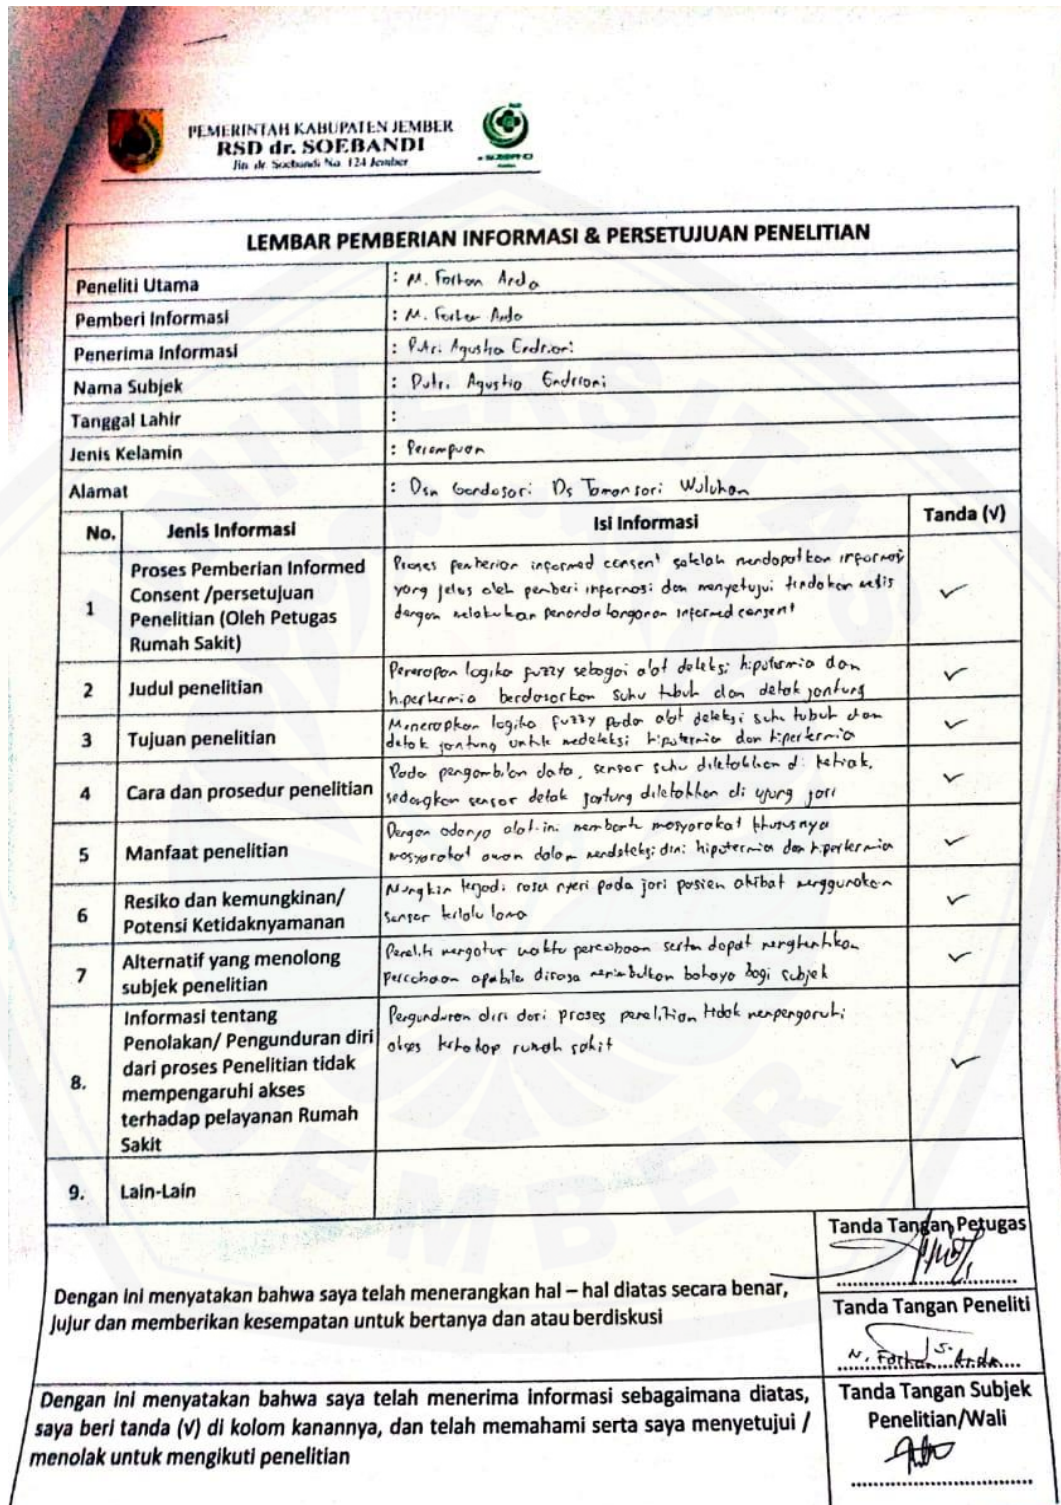 PEMERINTAH KABUPATEN JEMBER
RSD dr. SOEBANDI
Jln dr. Soebandi No. 124 Jember
LEMBAR PEMBERIAN INFORMASI & PERSETUJUAN PENELITIAN
Peneliti Utama : M. Farhan Arda
Pemberi Informasi : M. Farhan Arda
Penerima Informasi : Putri Agustia Endriani
Nama Subjek : Putri Agustia Endriani
Tanggal Lahir :
Jenis Kelamin : Perempuan
Alamat : Dsn Gondosari Ds Tamansari Wuluhan
No. Jenis Informasi Isi Informasi Tanda (√)
1 Proses Pemberian Informed Consent /persetujuan Penelitian (Oleh Petugas Rumah Sakit)
Proses pemberian informed consent setelah mendapatkan informasi
yang jelas oleh pemberi informasi dan menyetujui tindakan medis
dengan melakukan penanda tanganan informed consent
2 Judul penelitian
Penerapan logika fuzzy sebagai alat deteksi hipotermia dan
hipertermia berdasarkan suhu tubuh dan detak jantung
3 Tujuan penelitian
Menerapkan logika fuzzy pada alat deteksi suhu tubuh dan
detak jantung untuk medeteksi hipotermia dan hipertermia
4 Cara dan prosedur penelitian
Pada pengambilan data, sensor suhu diletakkan di ketiak,
sedangkan sensor detak jantung diletakkan di ujung jari
5 Manfaat penelitian
Dengan adanya alat ini membantu masyarakat khususnya
masyarakat awam dalam mendeteksi dini hipotermia dan hipertermia
6 Resiko dan kemungkinan/ Potensi Ketidaknyamanan
Mungkin terjadi rasa nyeri pada jari pasien akibat menggunakan
sensor terlalu lama
7 Alternatif yang menolong subjek penelitian
Peneliti mengatur waktu percobaan serta dapat menghentikan
percobaan apabila dirasa menimbulkan bahaya bagi subjek
8. Informasi tentang Penolakan/ Pengunduran diri dari proses Penelitian tidak mempengaruhi akses terhadap pelayanan Rumah Sakit
Pengunduran diri dari proses penelitian tidak mempengaruhi
akses terhadap rumah sakit
9. Lain-Lain
Dengan ini menyatakan bahwa saya telah menerangkan hal – hal diatas secara benar,
jujur dan memberikan kesempatan untuk bertanya dan atau berdiskusi
Tanda Tangan Petugas
Tanda Tangan Peneliti
M. Farhan S. Arda
Dengan ini menyatakan bahwa saya telah menerima informasi sebagaimana diatas,
saya beri tanda (√) di kolom kanannya, dan telah memahami serta saya menyetujui /
menolak untuk mengikuti penelitian
Tanda Tangan Subjek
Penelitian/Wali
UNIVERSITAS JEMBER